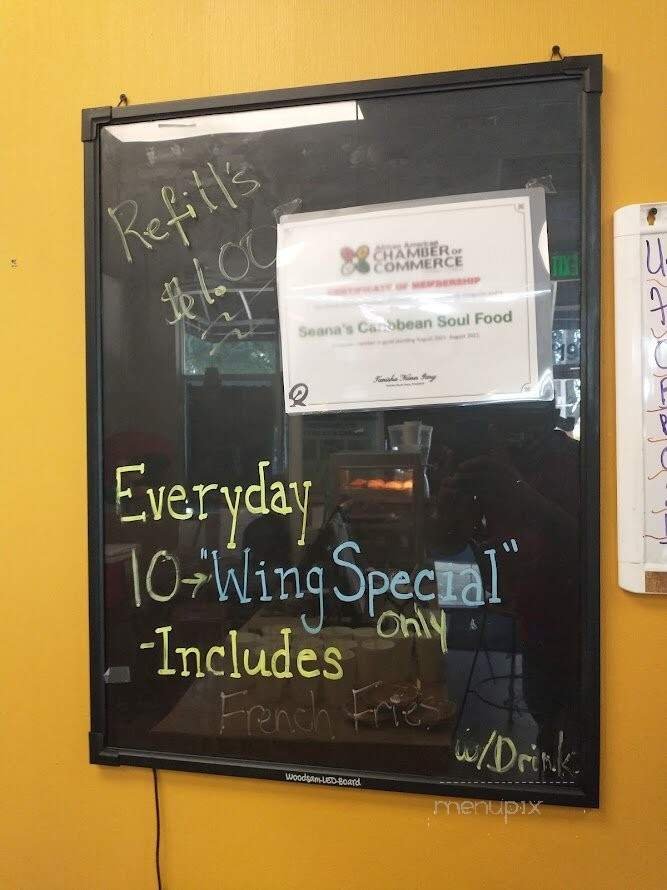 Refill's
$1.00
African American
CHAMBER OF
COMMERCE
CERTIFICATE OF MEMBERSHIP
Seana's Caribbean Soul Food
Everyday
10→"Wing Special"
only
-Includes
French Fries
w/Drink
Woodsam LED Board
menupix